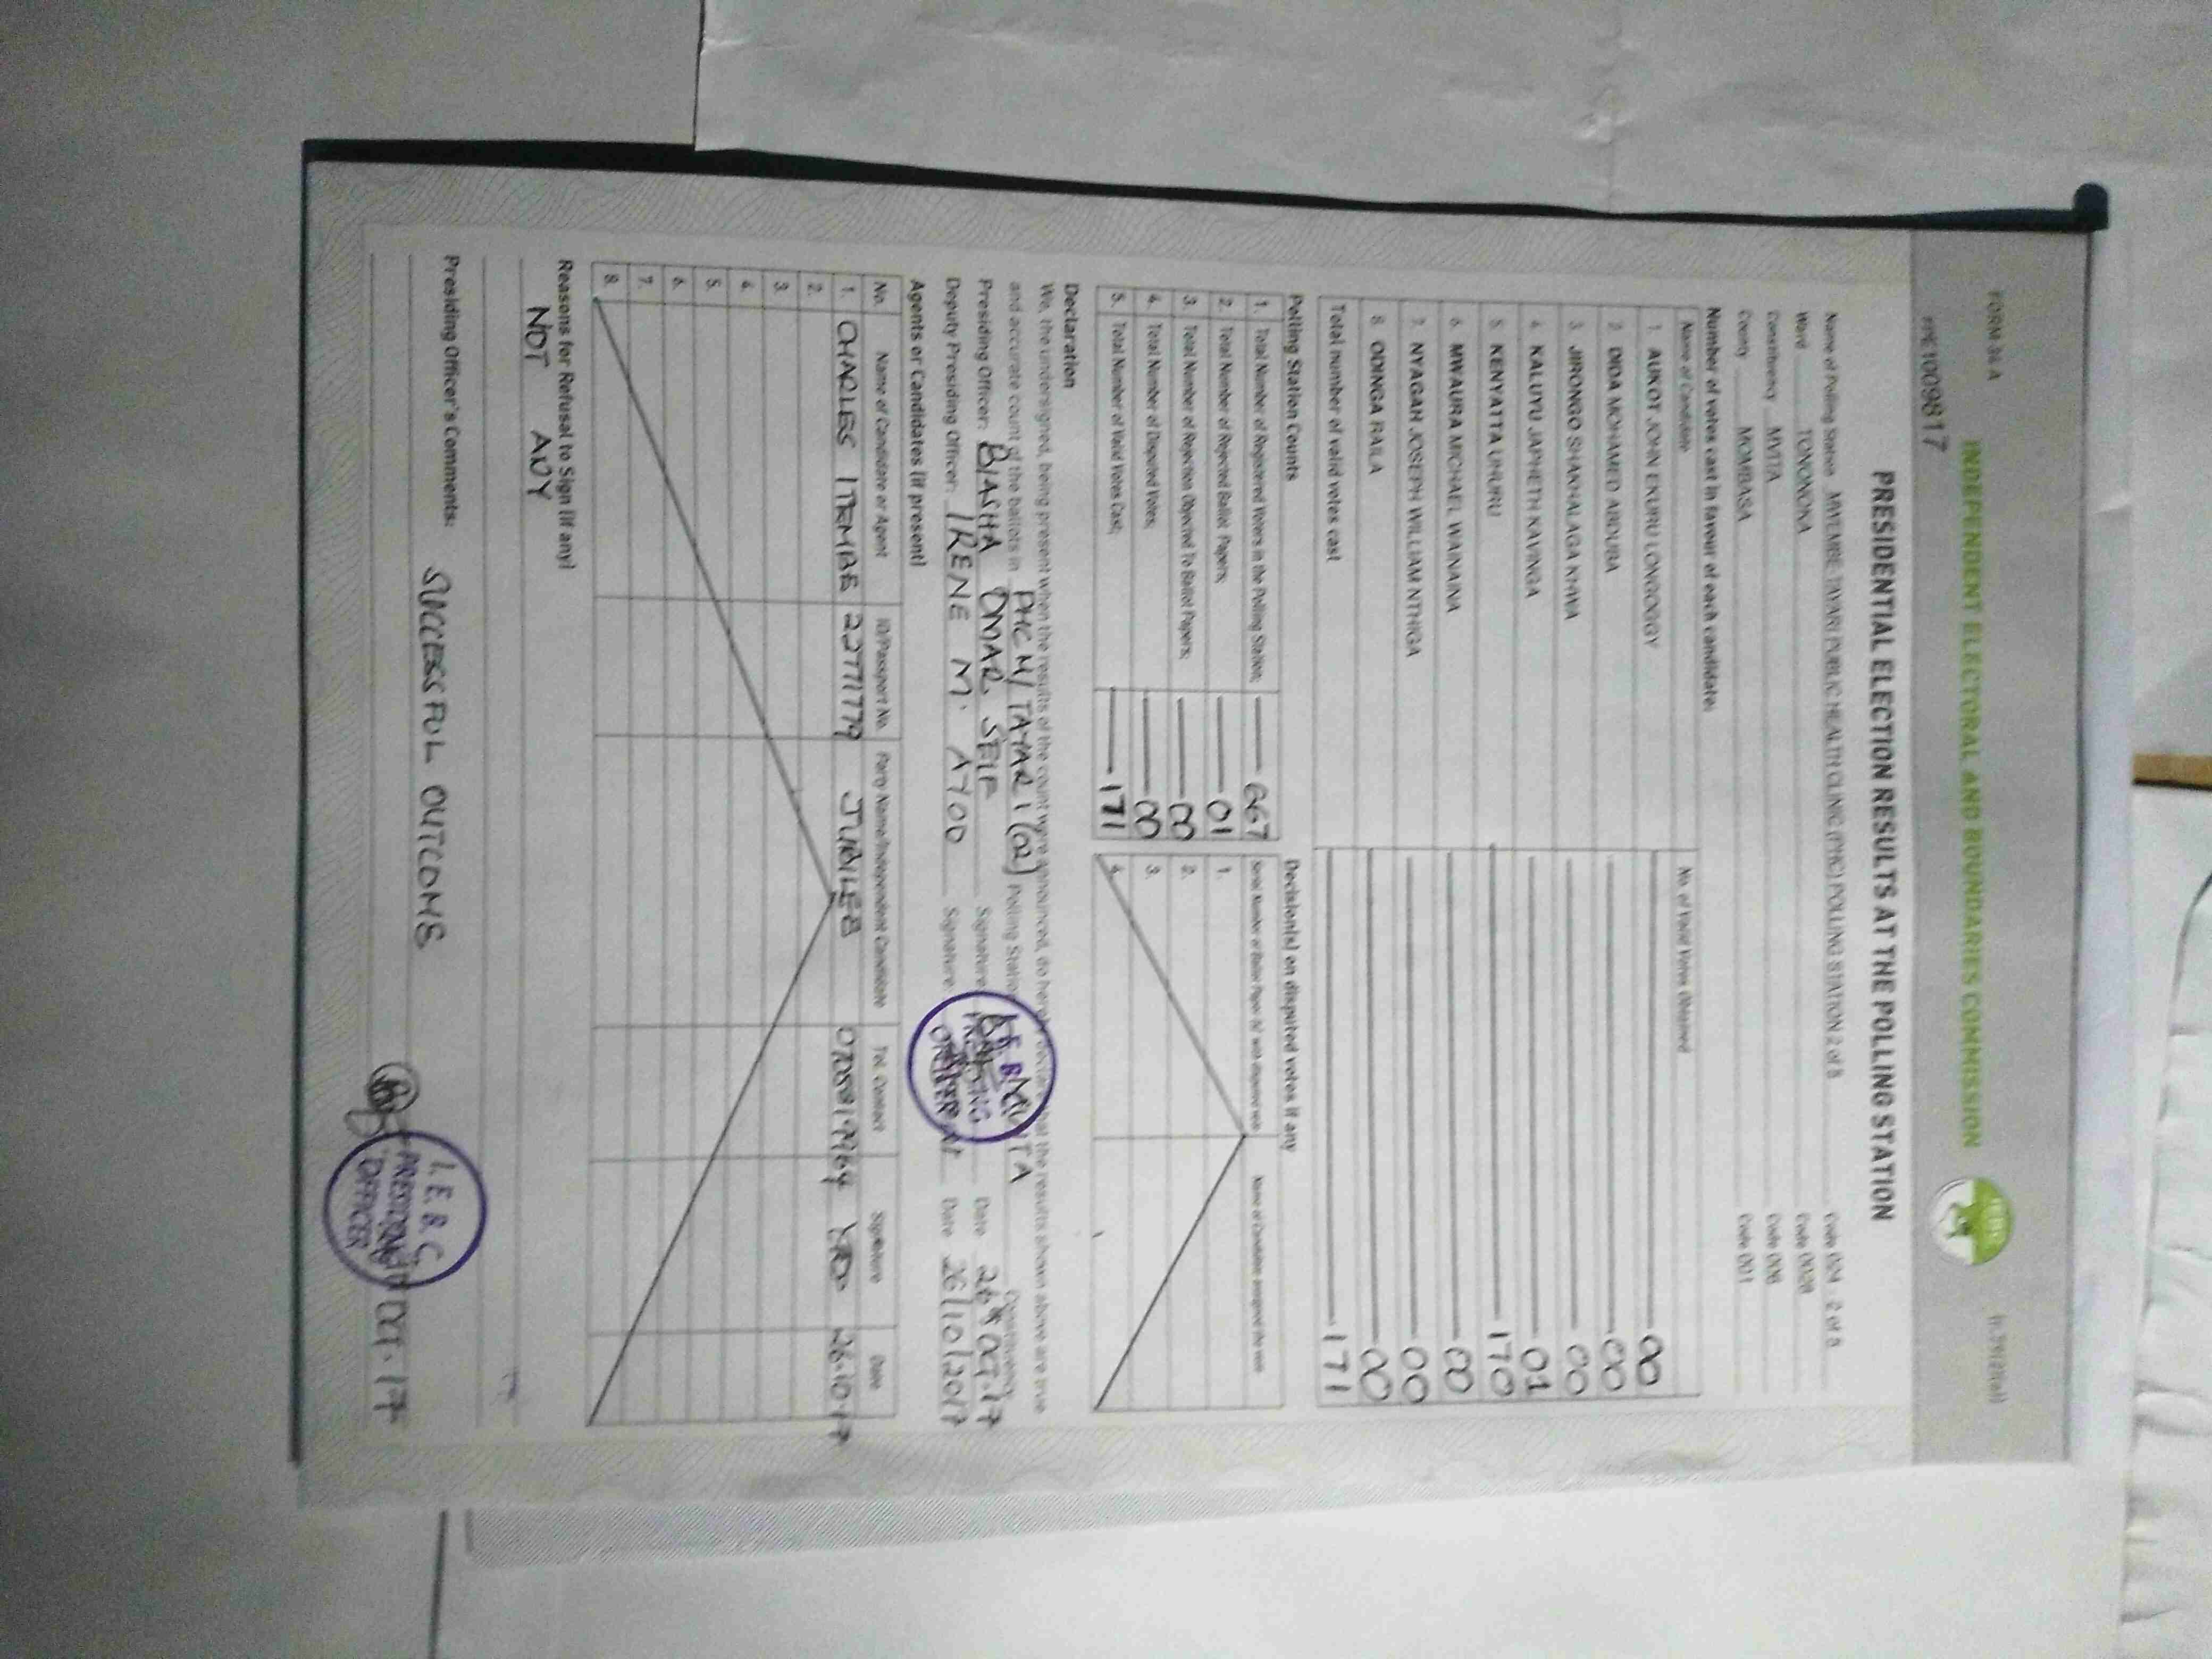 FORM 34 A
INDEPENDENT ELECTORAL AND BOUNDARIES COMMISSION
IEBC
PRE1009817
PRESIDENTIAL ELECTION RESULTS AT THE POLLING STATION
Name of Polling Station MVEMBE TAYARI PUBLIC HEALTH CLINIC (PHC) POLLING STATION 2 of 8 Code 024 - 2 of 8
Ward TONONOKA Code 0028
Constituency MVITA Code 006
County MOMBASA Code 001
Number of votes cast in favour of each candidate:
Name of Candidate No. of Valid Votes Obtained
1. AUKOT JOHN EKURU LONGOGGY 00
2. DIDA MOHAMED ABDUBA 00
3. JIRONGO SHAKHALAGA KHWA 00
4. KALUYU JAPHETH KAVINGA 01
5. KENYATTA UHURU 170
6. MWAURA MICHAEL WAINAINA 00
7. NYAGAH JOSEPH WILLIAM NTHIGA 00
8. ODINGA RAILA 00
Total number of valid votes cast 171
Polling Station Counts
1. Total Number of Registered Voters in the Polling Station; 667
2. Total Number of Rejected Ballot Papers; 01
3. Total Number of Rejection Objected To Ballot Papers; 00
4. Total Number of Disputed Votes; 00
5. Total Number of Valid Votes Cast; 171
Decision(s) on disputed votes if any
Serial Number of Ballot Paper (s) with disputed vote Name of Candidate assigned the vote
1.
2.
3.
4.
Declaration
We, the undersigned, being present when the results of the count were announced, do hereby declare that the results shown above are true
and accurate count of the ballots in PHC M/ TAYARI (02) Polling Station MVITA Constituency
Presiding Officer: BIASHA OMAR SEIF Signature Date 26th OCT. 17
Deputy Presiding Officer: IRENE M. AYOO Signature Date 26/10/2017
Agents or Candidates (if present)
No. Name of Candidate or Agent ID/Passport No. Party Name/Independent Candidate Tel. Contact Signature Date
1. CHARLES 22771779 JUBILEE 26.10.17
2.
3.
4.
5.
6.
7.
8.
Reasons for Refusal to Sign (if any)
NOT ANY
Presiding Officer's Comments: SUCCESSFUL OUTCOME
I.E.B.C
PRESIDING
OFFICER
OCT. 17